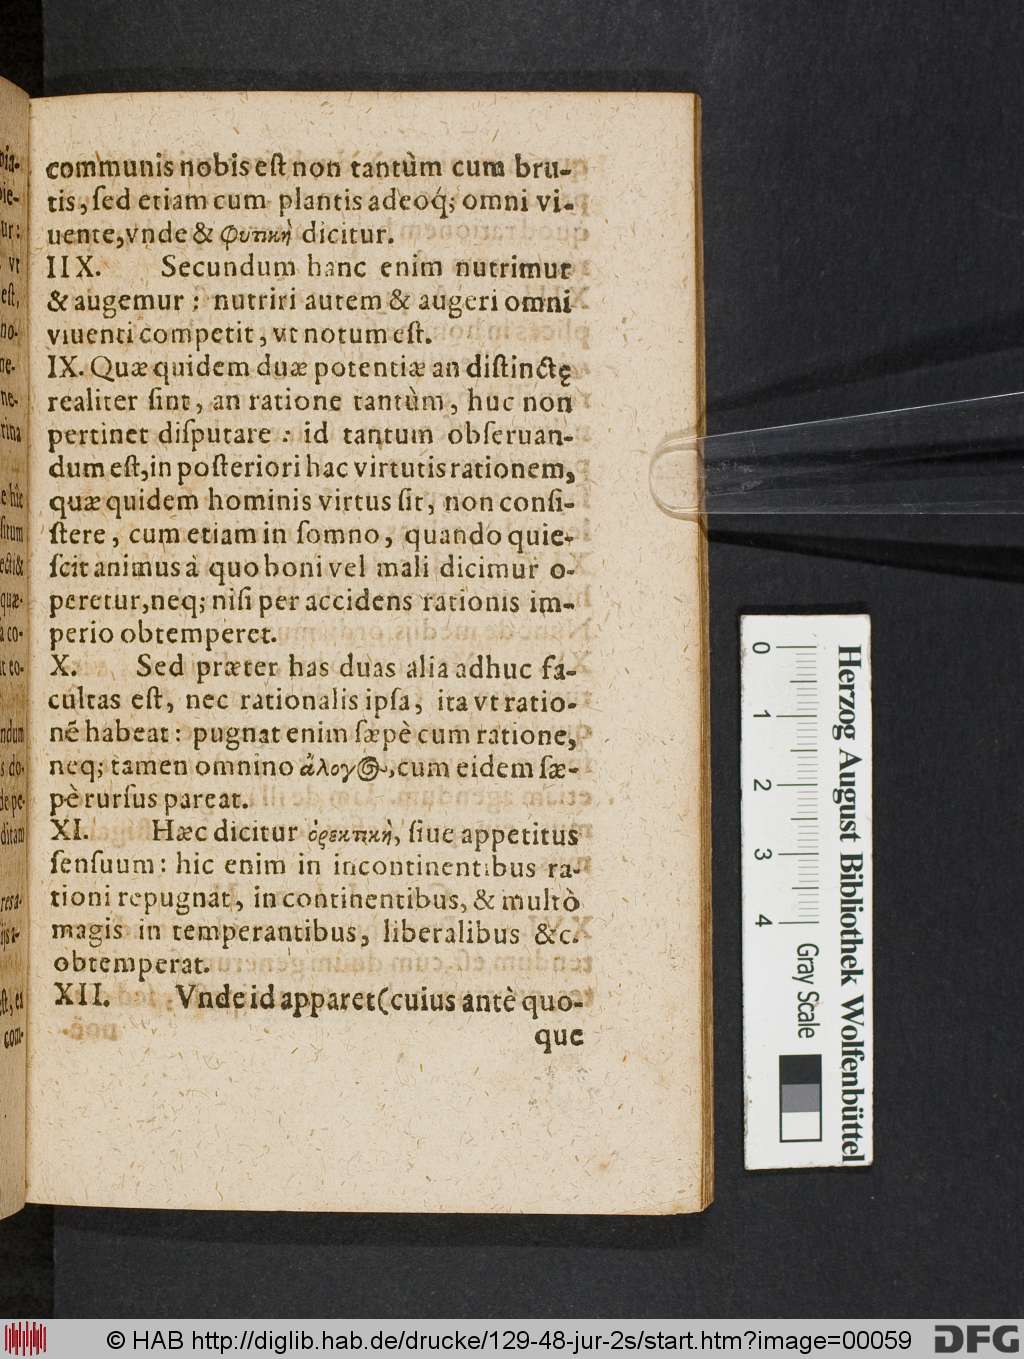 communis nobis est non tantùm cum bru-
tis, sed etiam cum plantis adeoq́; omni vi-
uente, vnde & φυτικὴ dicitur.
IIX. Secundum hanc enim nutrimur
& augemur: nutriri autem & augeri omni
viuenti competit, vt notum est.
IX. Quæ quidem duæ potentiæ an distinctę
realiter sint, an ratione tantùm, huc non
pertinet disputare: id tantum obseruan-
dum est, in posteriori hac virtutis rationem,
quæ quidem hominis virtus sit, non consi-
stere, cum etiam in somno, quando quie-
scit animus à quo boni vel mali dicimur o-
peretur, neq; nisi per accidens rationis im-
perio obtemperet.
X. Sed præter has duas alia adhuc fa-
cultas est, nec rationalis ipsa, ita vt ratio-
nẽ habeat: pugnat enim sæpè cum ratione,
neq; tamen omnino ἄλογος, cum eidem sæ-
pè rursus pareat.
XI. Hæc dicitur ὀρεκτικὴ, siue appetitus
sensuum: hic enim in incontinentibus ra-
tioni repugnat, in continentibus, & multò
magis in temperantibus, liberalibus &c.
obtemperat.
XII. Vnde id apparet (cuius antè quo-
que
Herzog August Bibliothek Wolfenbüttel
0 1 2 3 4 Gray Scale
© HAB http://diglib.hab.de/drucke/129-48-jur-2s/start.htm?image=00059
DFG